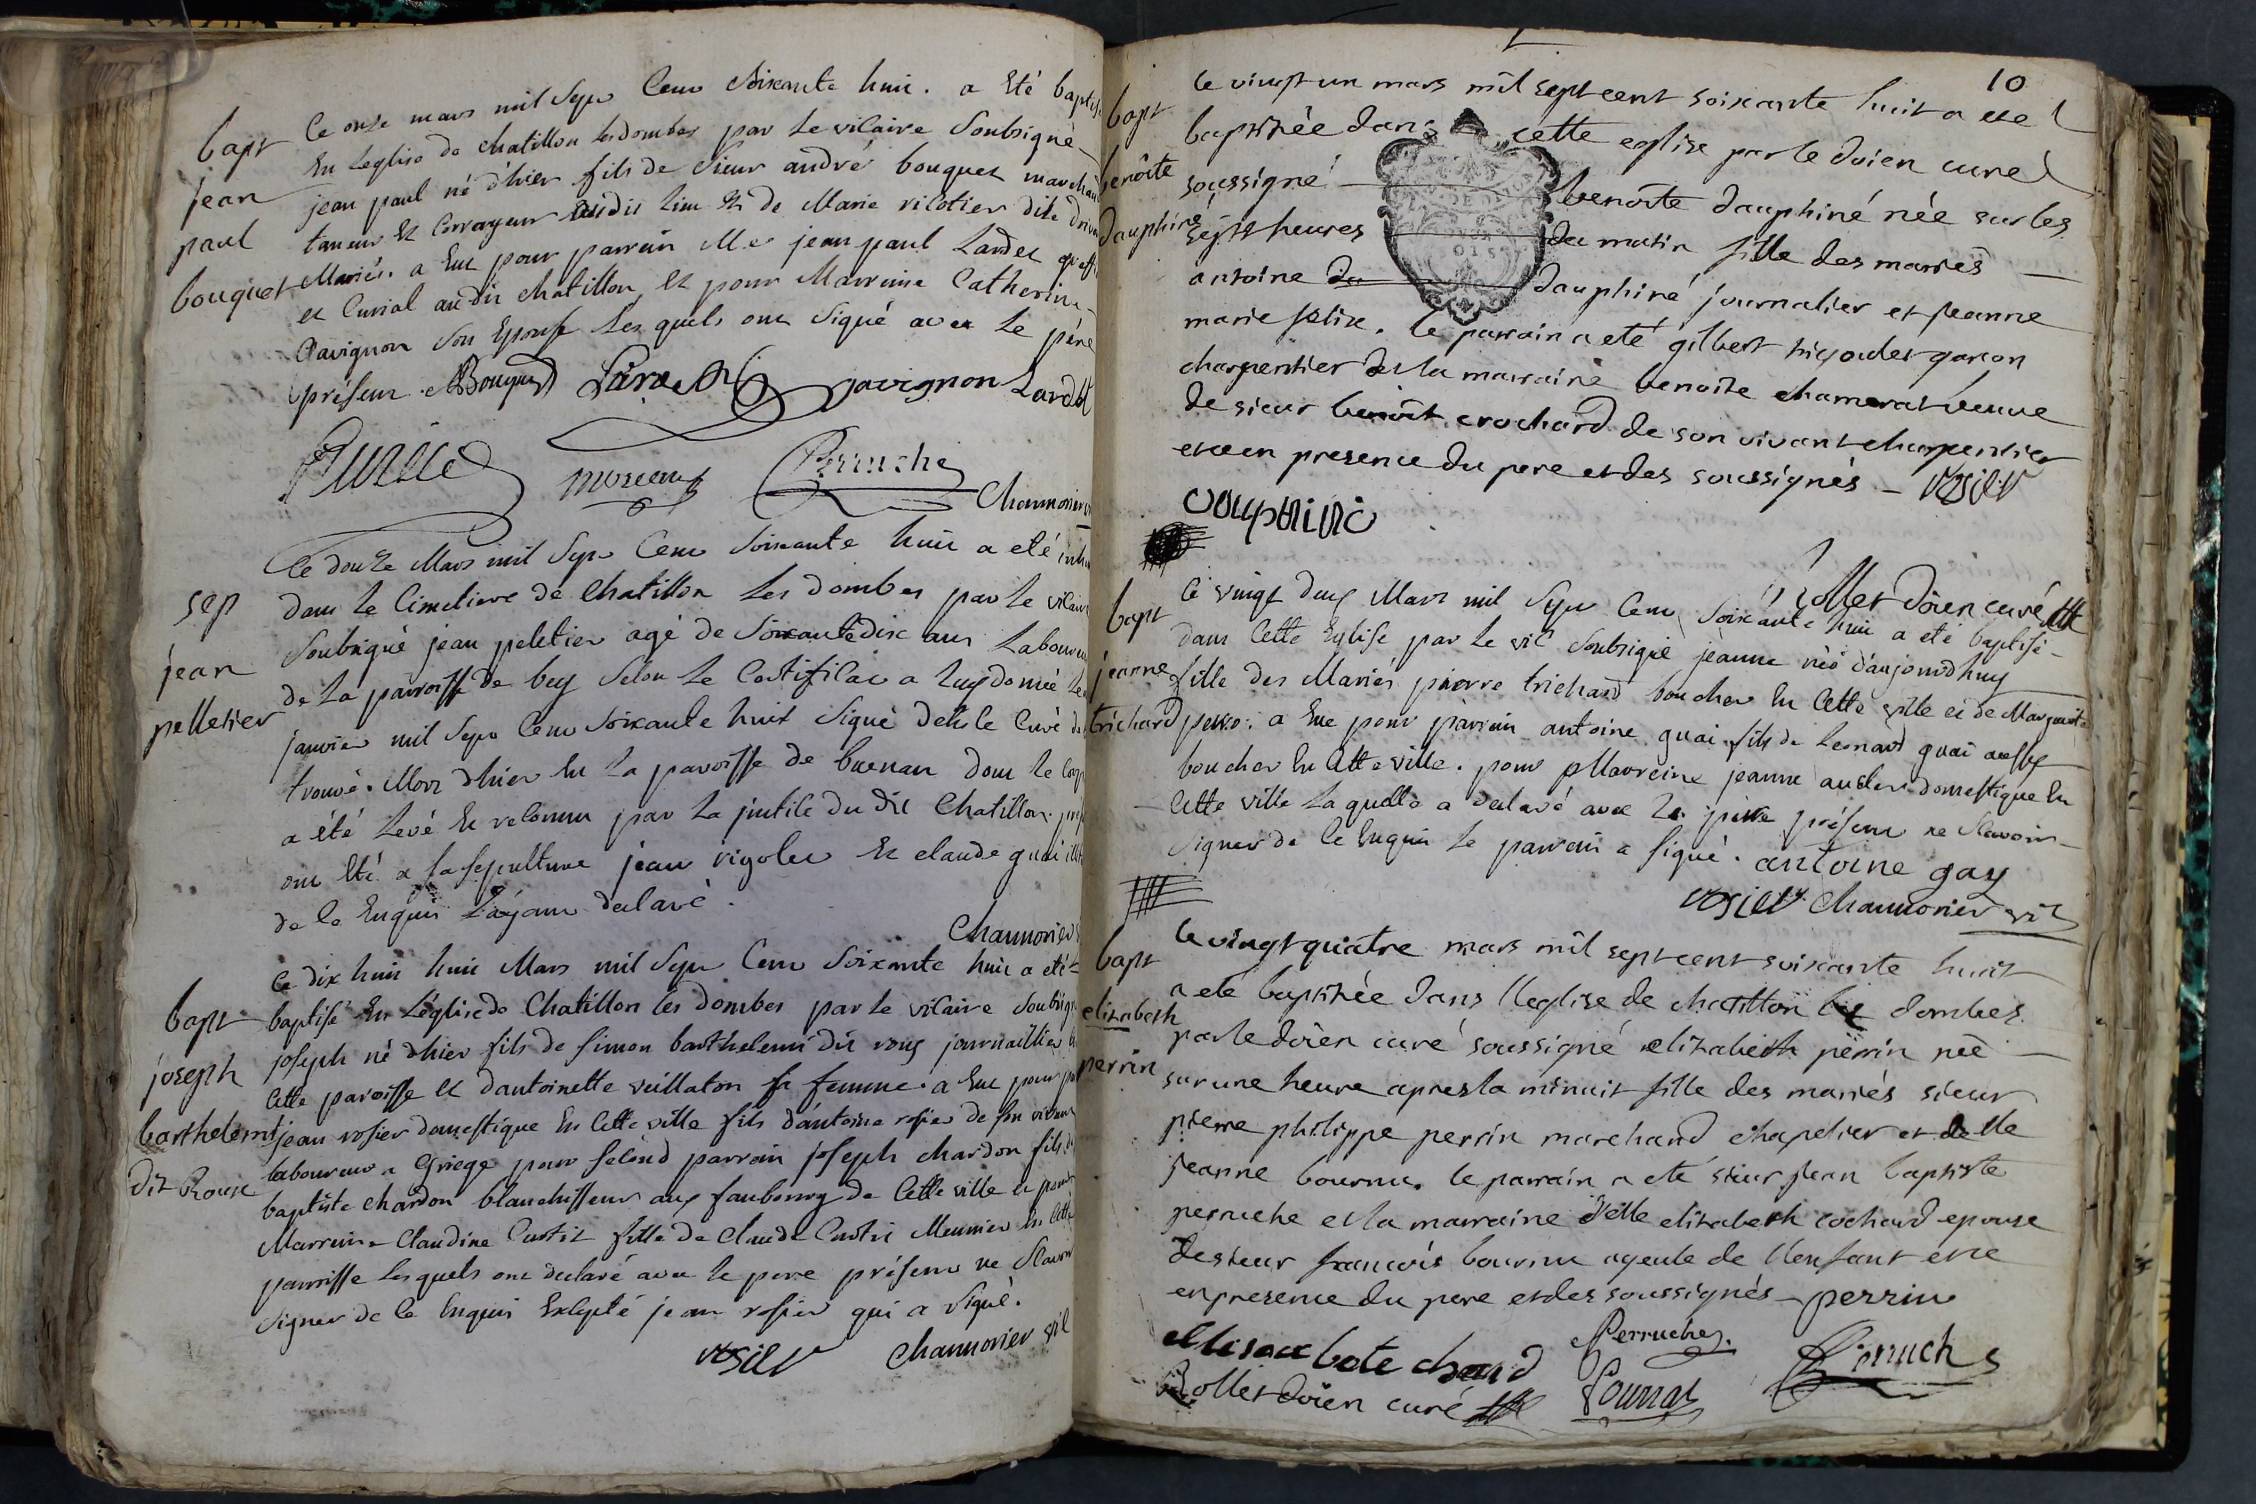 bapt
jean
paul
bouquet
Ce onze mars mil Sept Cent Soixante huit. a Eté baptisé
En Leglise de chatillon les dombes par le vicaire Soubsigné
jean paul né d'hier fils de Sieur andré bouquet marchand
taneur Et Corroyeur dudit lieu Et de Marie
Mariés. a Eut pour parrain Me jean paul Lardet
et Curial audit chatillon Et pour Marraine Catherine
Davignon Son Epouse Lesquels ont Signé avec le père
présent. Bouquet Davignon Lardet
moreau Perruche
Chaunorier
sep
jean
pelletier
Ce douze Mars mil Sept Cent Soixante huit a eté
dans le Cimetiere de Chatillon Les dombes par le vicaire
Soubsigné jean peletier agé de Soixante dix ans Laboureur
de La parroisse de bey Selon Le Certificat a Luy donné Le
janvier mil Sept Cent Soixante huit Signé du Curé
trouvé. Mort d'hier En La paroisse de buenan dont le
a été Levé Et reconnu par La justice du dit Chatillon.
ont été a Sa Sepulture jean rigolet Et claude
de Ce Enquis Layant declaré.
Chaunorier
bapt
joseph
barthelemi
dit Roux
Ce dix huit huit Mars mil Sept Cent Soixante huit a eté
baptisé En L'églisede Chatillon les dombes par le vicaire Soubsigné
joseph né d'hier fils de Simon barthelemi dit roux journaillier
Cette paroisse et dantoinette vuillaton Sa femme. a Eut pour
jean rosier domestique En Cette ville fils d'antoine rosier de Son vivant
laboureur a Griege pour Second parrain joseph chardon fils
baptiste chardon blanchisseur aux faubourg de Cette ville et pour
Marraine Claudine Curtit fille de Claude Curtit Meunier En Cette
parroisse Lesquels ont declaré avec le pere présent ne Scavoir
Signer de Ce Enquis Excepté jean rosier qui a Signé.
rosier Chaunorier vic
10
bapt
benoîte
dauphiné
le vingt un mars mil sept cent soixante huit a ete
baptisée dans cette eglise par le doien curé
soussigné benoîte dauphiné née sur les
sept heures du matin fille des mariés
antoine dauphiné journalier et jeanne
marie felix. le parrain a eté gilbert rigoulet garçon
charpentier et la marraine benoîte chamerat veuve
de sieur benoît crochard de son vivant charpentier
et ce en presence du pere et des soussignés rosier
dauphiné
Rollet doien curé
bapt
jeanne
trichard
Ce vingt deux Mars mil Sept Cent Soixante huit a eté baptisé
dans Cette Eglise par Le vic Soubsigné jeanne née d'aujourdhuy
fille des Mariés pierre trichard boucher En Cette ville et de Marguerite
perro. a Eut pour parrain antoine guai fils de Leonard guai aussy
boucher En Cette ville. pour Marreine jeanne domestique En
Cette ville Laquelle a declaré avec Le père présent ne Scavoir
Signer de Ce Enquis Le parrain a signé. antoine gay
rosier Chaunorier vic
bapt
elizabeth
perrin
le vingt quatre mars mil sept cent soixante huit
a ete baptisée dans l'eglise de chatillon les dombes
par le doien curé soussigné elizabeth perrin née
sur une heure apres la minuit fille des mariés sieur
pierre philippe perrin marchand chapelier et delle
jeanne bournu. le parrain a eté sieur jean baptiste
perruche et la marraine d'elle elizabeth cochard epouse
de sieur francois bournu ayeule de l'enfant et ce
en presence du pere et des soussignés perrin
Perruche
Perruche
Rollet doien curé